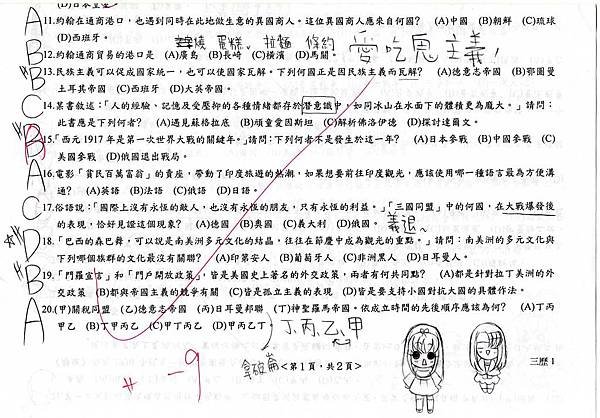 (D)日本皇室
A 11.約翰在通商港口，也遇到同時在此地做生意的異國商人。這位異國商人應來自何國？ (A)中國 (B)朝鮮 (C)琉球
(D)西班牙。
蛋糕、拉麵 條約 愛吃鬼主義！
B 12.約翰通商貿易的港口是 (A)廣島 (B)長崎 (C)橫濱 (D)馬關。
B 13.民族主義可以促成國家統一，也可以使國家瓦解。下列何國正是因民族主義而瓦解？ (A)德意志帝國 (B)鄂圖曼
土耳其帝國 (C)西班牙 (D)大英帝國。
C 14.某書敘述：「人的經驗、記憶及受壓抑的各種情緒都存於潛意識中，如同冰山在水面下的體積更為龐大。」請問：
此書應是下列何者？ (A)遇見蘇格拉底 (B)頑童愛因斯坦 (C)解析佛洛伊德 (D)探討達爾文。
B 15.「西元 1917 年是第一次世界大戰的關鍵年。」請問：下列何者不是發生於這一年？ (A)日本參戰 (B)中國參戰 (C)
美國參戰 (D)俄國退出戰局。
A 16.電影「貧民百萬富翁」的賣座，帶動了印度旅遊的熱潮，如果想要前往印度觀光，應該使用哪一種語言最為方便溝
通？ (A)英語 (B)法語 (C)俄語 (D)日語。
C 17.俗語說：「國際上沒有永恆的敵人，也沒有永恆的朋友，只有永恆的利益。」「三國同盟」中的何國，在大戰爆發後
的表現，恰好見證這個現象？ (A)德國 (B)奧國 (C)義大利 (D)俄國。 義退~
D 18.「巴西的森巴舞，可以說是南美洲多元文化的結晶，往往在節慶中成為觀光的重點。」請問：南美洲的多元文化與
下列哪個族群的文化最沒有關聯？ (A)印第安人 (B)葡萄牙人 (C)非洲黑人 (D)日耳曼人。
B 19.「門羅宣言」和「門戶開放政策」，皆是美國史上著名的外交政策，兩者有何共同點？ (A)都是針對拉丁美洲的外
交政策 (B)都與帝國主義的競爭有關 (C)皆是孤立主義的表現 (D)皆是要支持小國對抗大國的具體作法。
A 20.(甲)關稅同盟 (乙)德意志帝國 (丙)日耳曼邦聯 (丁)神聖羅馬帝國。依成立時間的先後順序應該為何？ (A)丁丙
甲乙 (B)丁丙甲乙 (C)甲丁丙乙 (D)甲丙乙丁。 丁、丙、乙、甲
-9
拿破崙
<第 1 頁，共 2 頁>
三歷 1